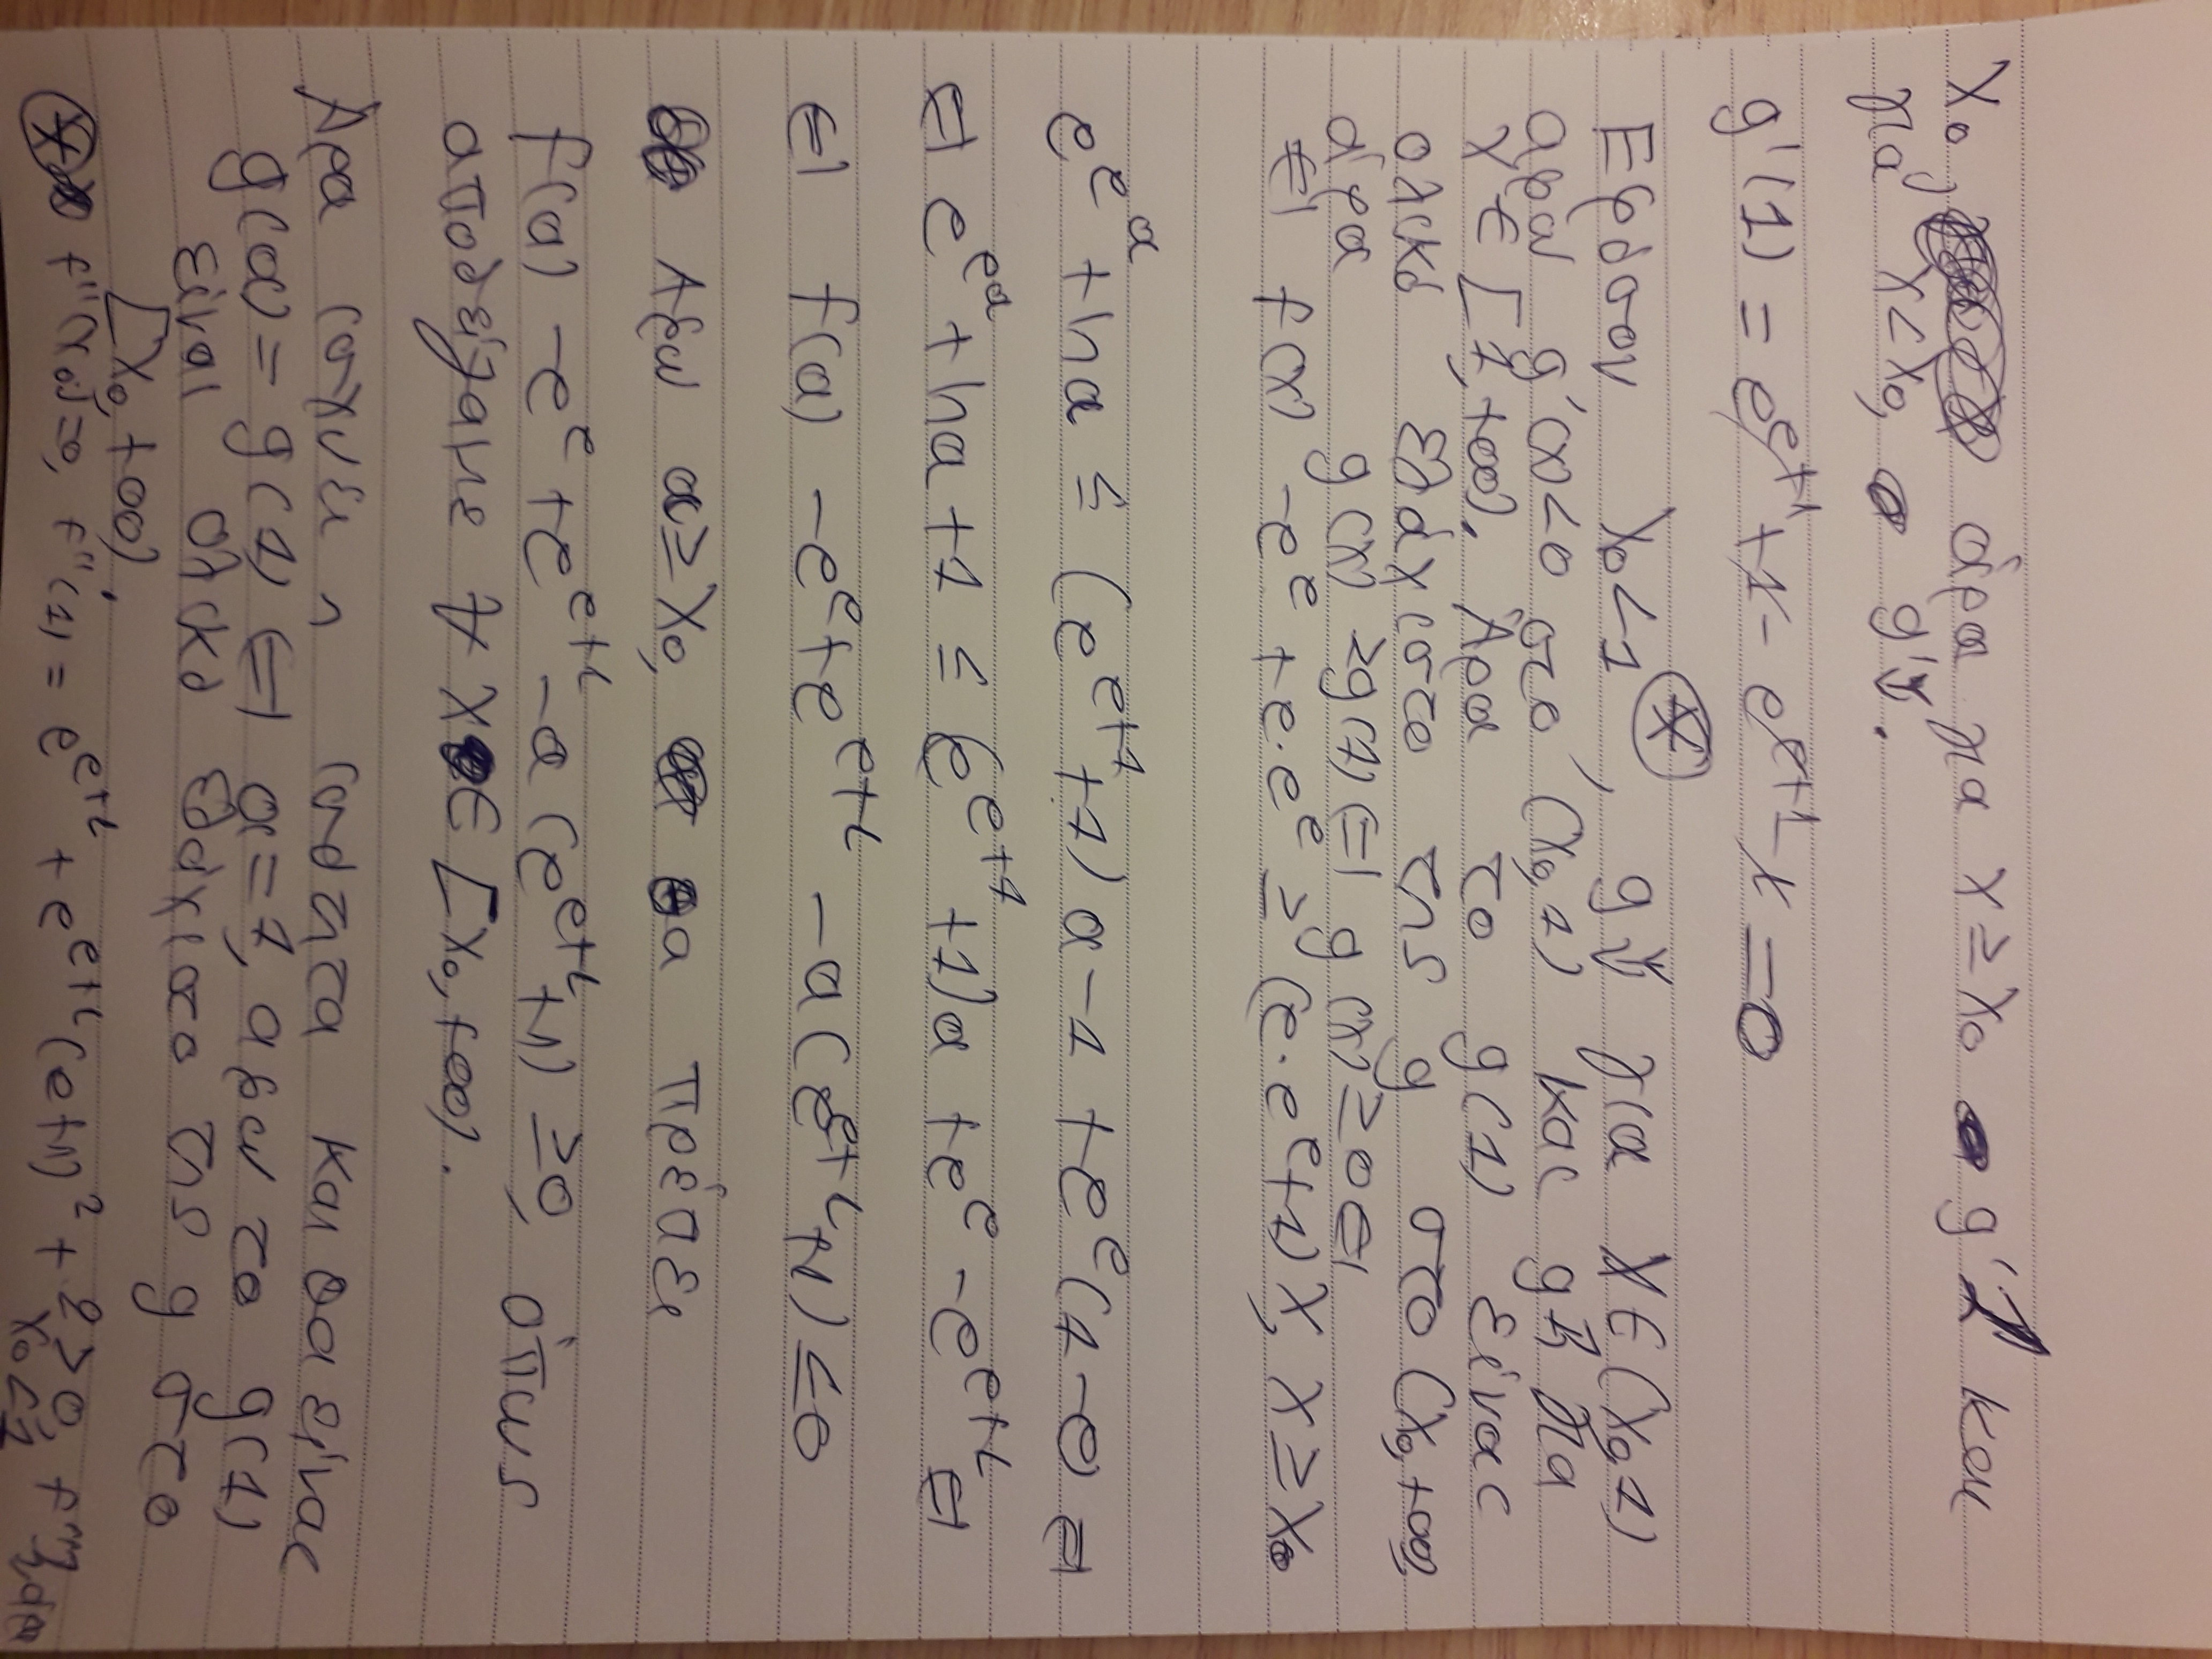 x₀, άρα για x ≥ x₀ g'↗ και
για x < x₀, g'↘.
g'(1) = e^{e+1} + 1 - e^{e+1} - 1 = 0
Εφόσον x₀ < 1 (*), g'↗ για x ∈ (x₀, 1)
άρα g'(x) < 0 στο (x₀, 1) και g↗ για
x ∈ [1, +∞). Άρα το g(1) είναι
ολικό ελάχιστο της g στο (x₀, +∞)
άρα g(x) ≥ g(1) ⇔ g(x) ≥ 0 ⇔
⇔ f(x) - e^e + e·e^e ≥ (e·e^e + 1)x, x ≥ x₀
e^{e^a} + ln a ≤ (e^{e+1} + 1)a - 1 + e^e(1 - e) ⇔
⇔ e^{e^a} + ln a + 1 ≤ (e^{e+1} + 1)a + e^e - e^{e+1} ⇔
⇔ f(a) - e^e + e^{e+1} - a(e^{e+1} + 1) ≤ 0
Λέω a ≥ x₀, a πρέπει
f(a) - e^e + e^{e+1} - a(e^{e+1} + 1) ≥ 0, όπως
αποδείξαμε ∀ x ∈ [x₀, +∞).
Άρα ισχύει η ισότητα και θα είναι
g(a) = g(1) ⇔ a = 1, αφού το g(1)
είναι ολικό ελάχιστο της g στο
[x₀, +∞).
(*) f''(x₀) = 0, f''(1) = e^{e+1} + e^{e+1}(e+1)² + 2 > 0, f''↗, άρα
x₀ < 1